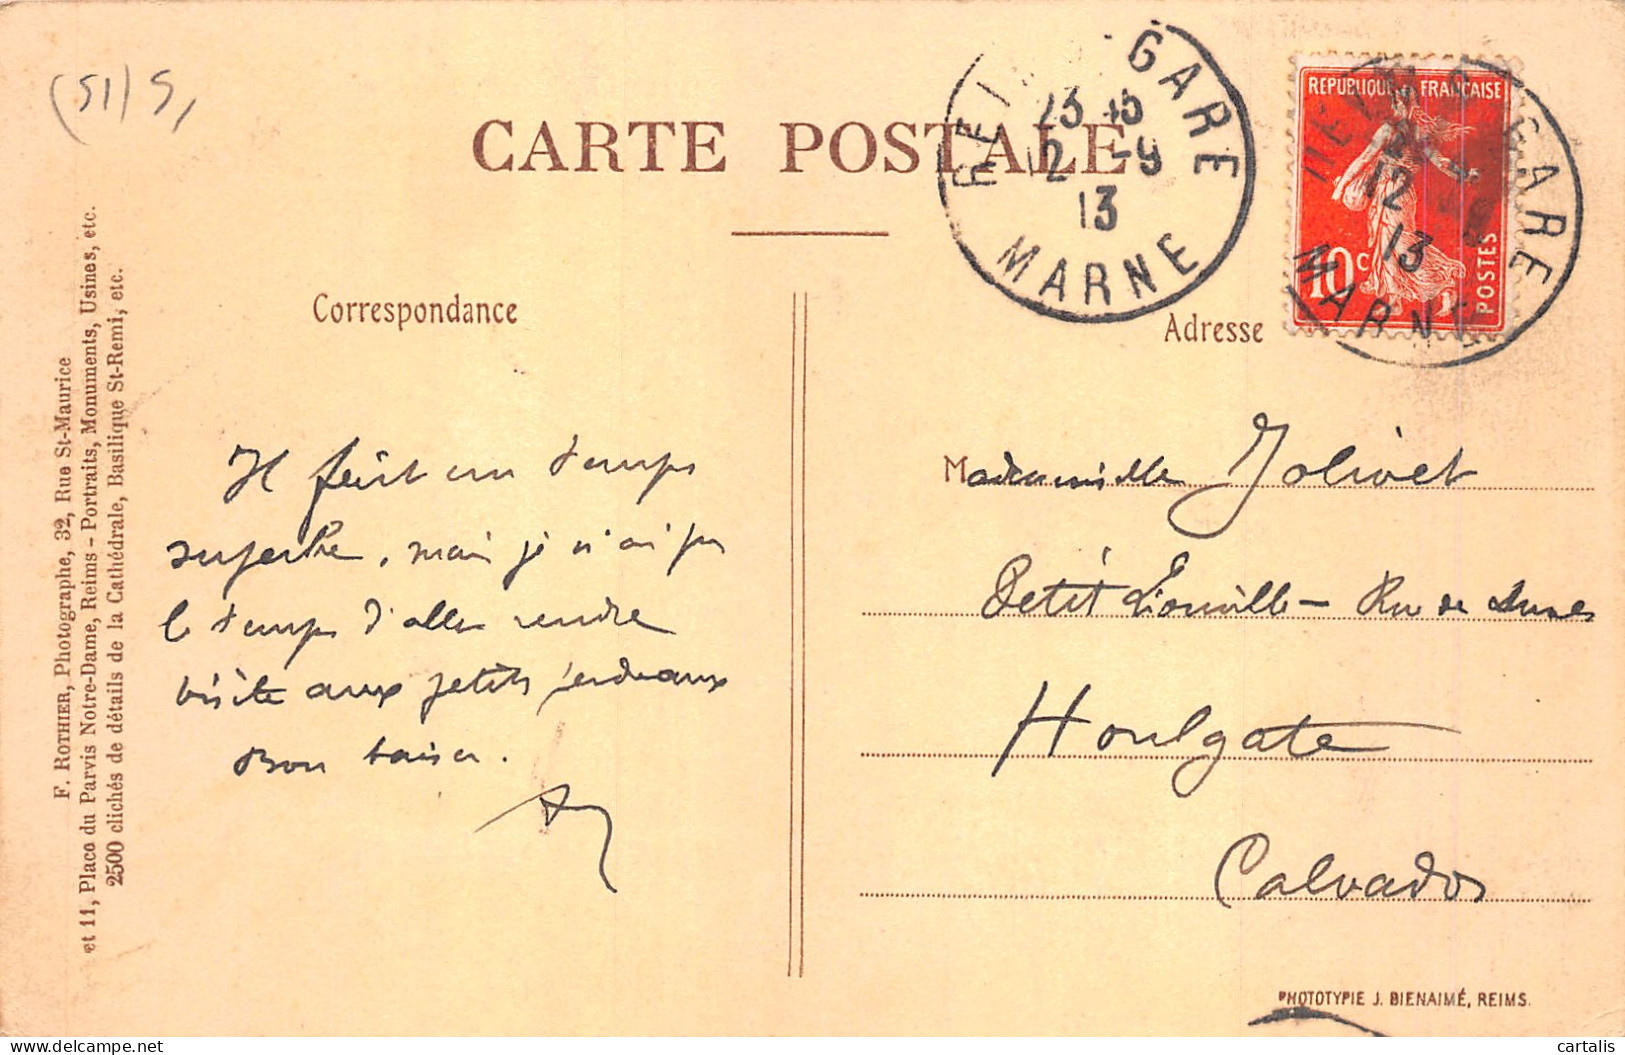 (51) 5,
CARTE POSTALE
REIMS GARE
23 15
12 -9
13
MARNE
REPUBLIQUE FRANÇAISE
10c
POSTES
GARE
12
13
MARNE
Correspondance
Adresse
F. ROTHIER, Photographe, 32, Rue St-Maurice
et 11, Place du Parvis Notre-Dame, Reims - Portraits, Monuments, Usines, etc.
2500 clichés de détails de la Cathédrale, Basilique St-Remi, etc.
Il fait un temps
superbe, mais je n'ai pu
le temps d'aller rendre
visite aux petits
Bon baiser.
Mademoiselle Jolivet
Petit Liouville - Rue de Dunes
Houlgate
Calvados
PHOTOTYPIE J. BIENAIMÉ, REIMS.
cartalis